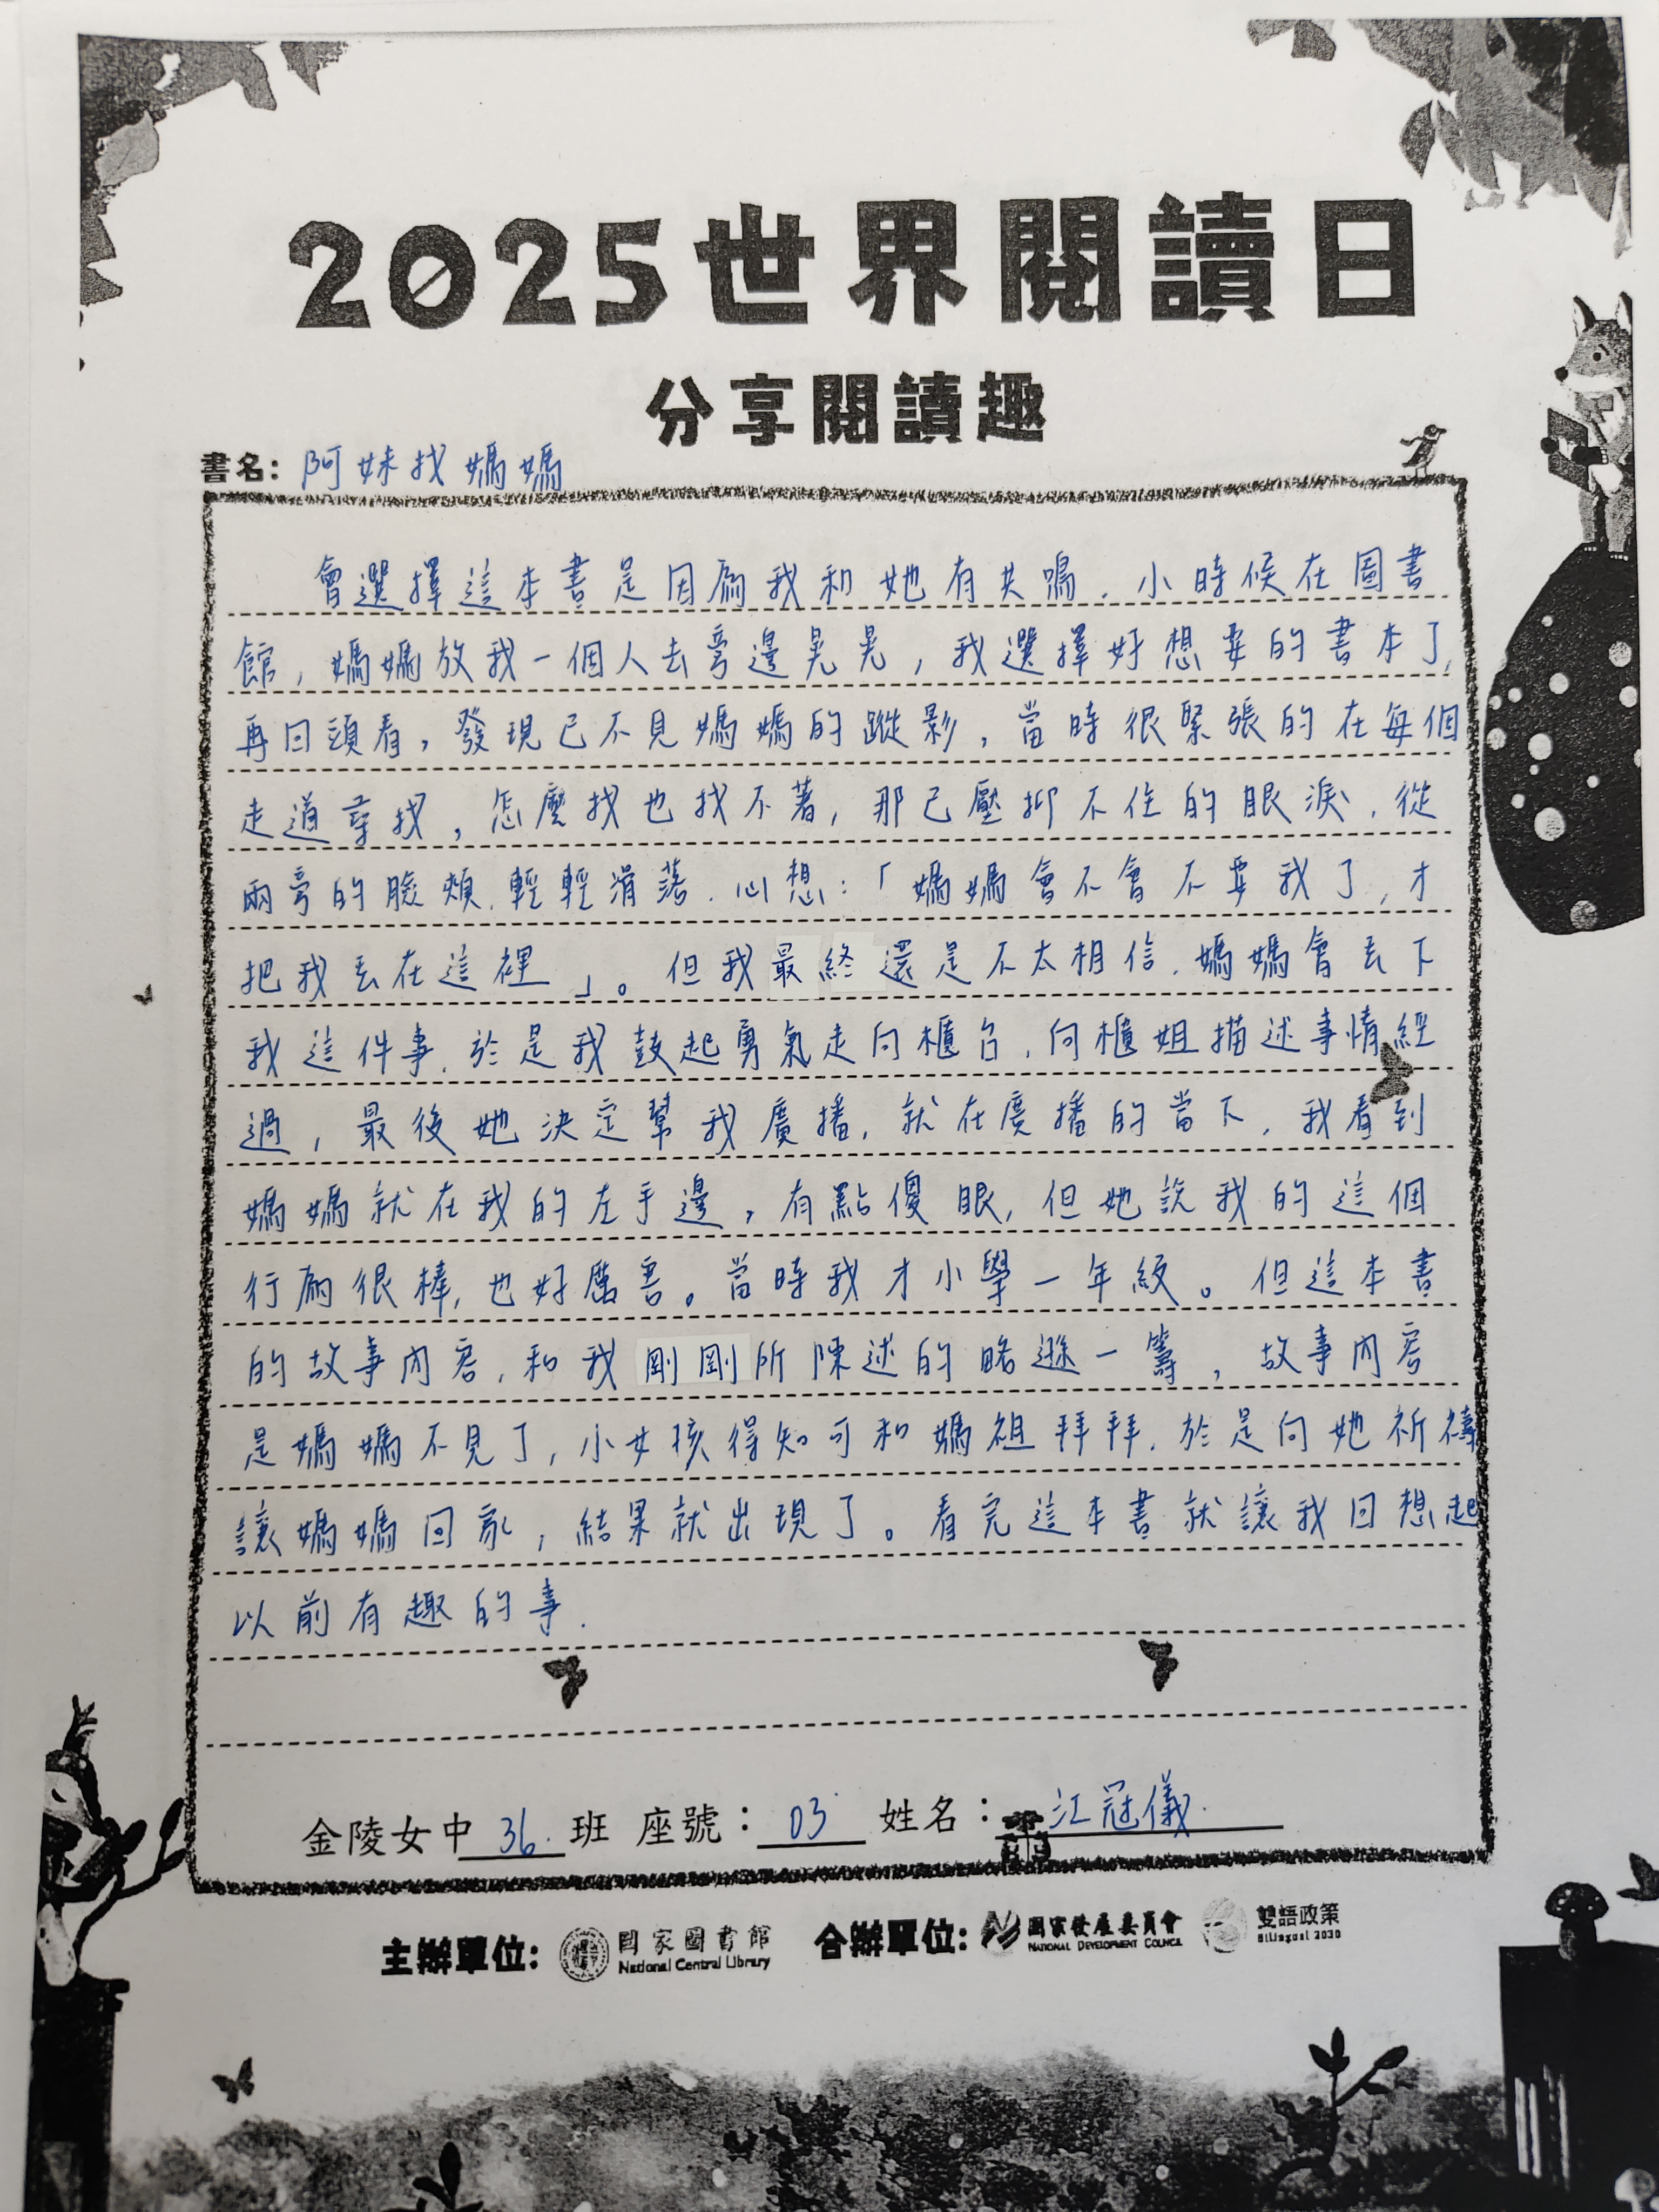 2025世界閱讀日
分享閱讀趣
書名：阿妹找媽媽
會選擇這本書是因為我和她有共鳴，小時候在圖書
館，媽媽放我一個人去旁邊晃晃，我選擇好想要的書本了，
再回頭看，發現已不見媽媽的蹤影，當時很緊張的在每個
走道尋找，怎麼找也找不著，那已壓抑不住的眼淚，從
兩旁的臉頰，輕輕滑落，心想：「媽媽會不會不要我了，才
把我丟在這裡」。但我最終還是不太相信，媽媽會丟下
我這件事，於是我鼓起勇氣走向櫃台，向櫃姐描述事情經
過，最後她決定幫我廣播，就在廣播的當下，我看到
媽媽就在我的左手邊，有點傻眼，但她說我的這個
行為很棒，也好厲害。當時我才小學一年級。但這本書
的故事內容，和我剛剛所陳述的略遜一籌，故事內容
是媽媽不見了，小女孩得知可和媽祖拜拜，於是向她祈禱
讓媽媽回家，結果就出現了。看完這本書就讓我回想起
以前有趣的事.
金陵女中 36. 班 座號：03 姓名：江冠儀.
主辦單位：國家圖書館 National Central Library 合辦單位：國家發展委員會 NATIONAL DEVELOPMENT COUNCIL 雙語政策 Bilingual 2030